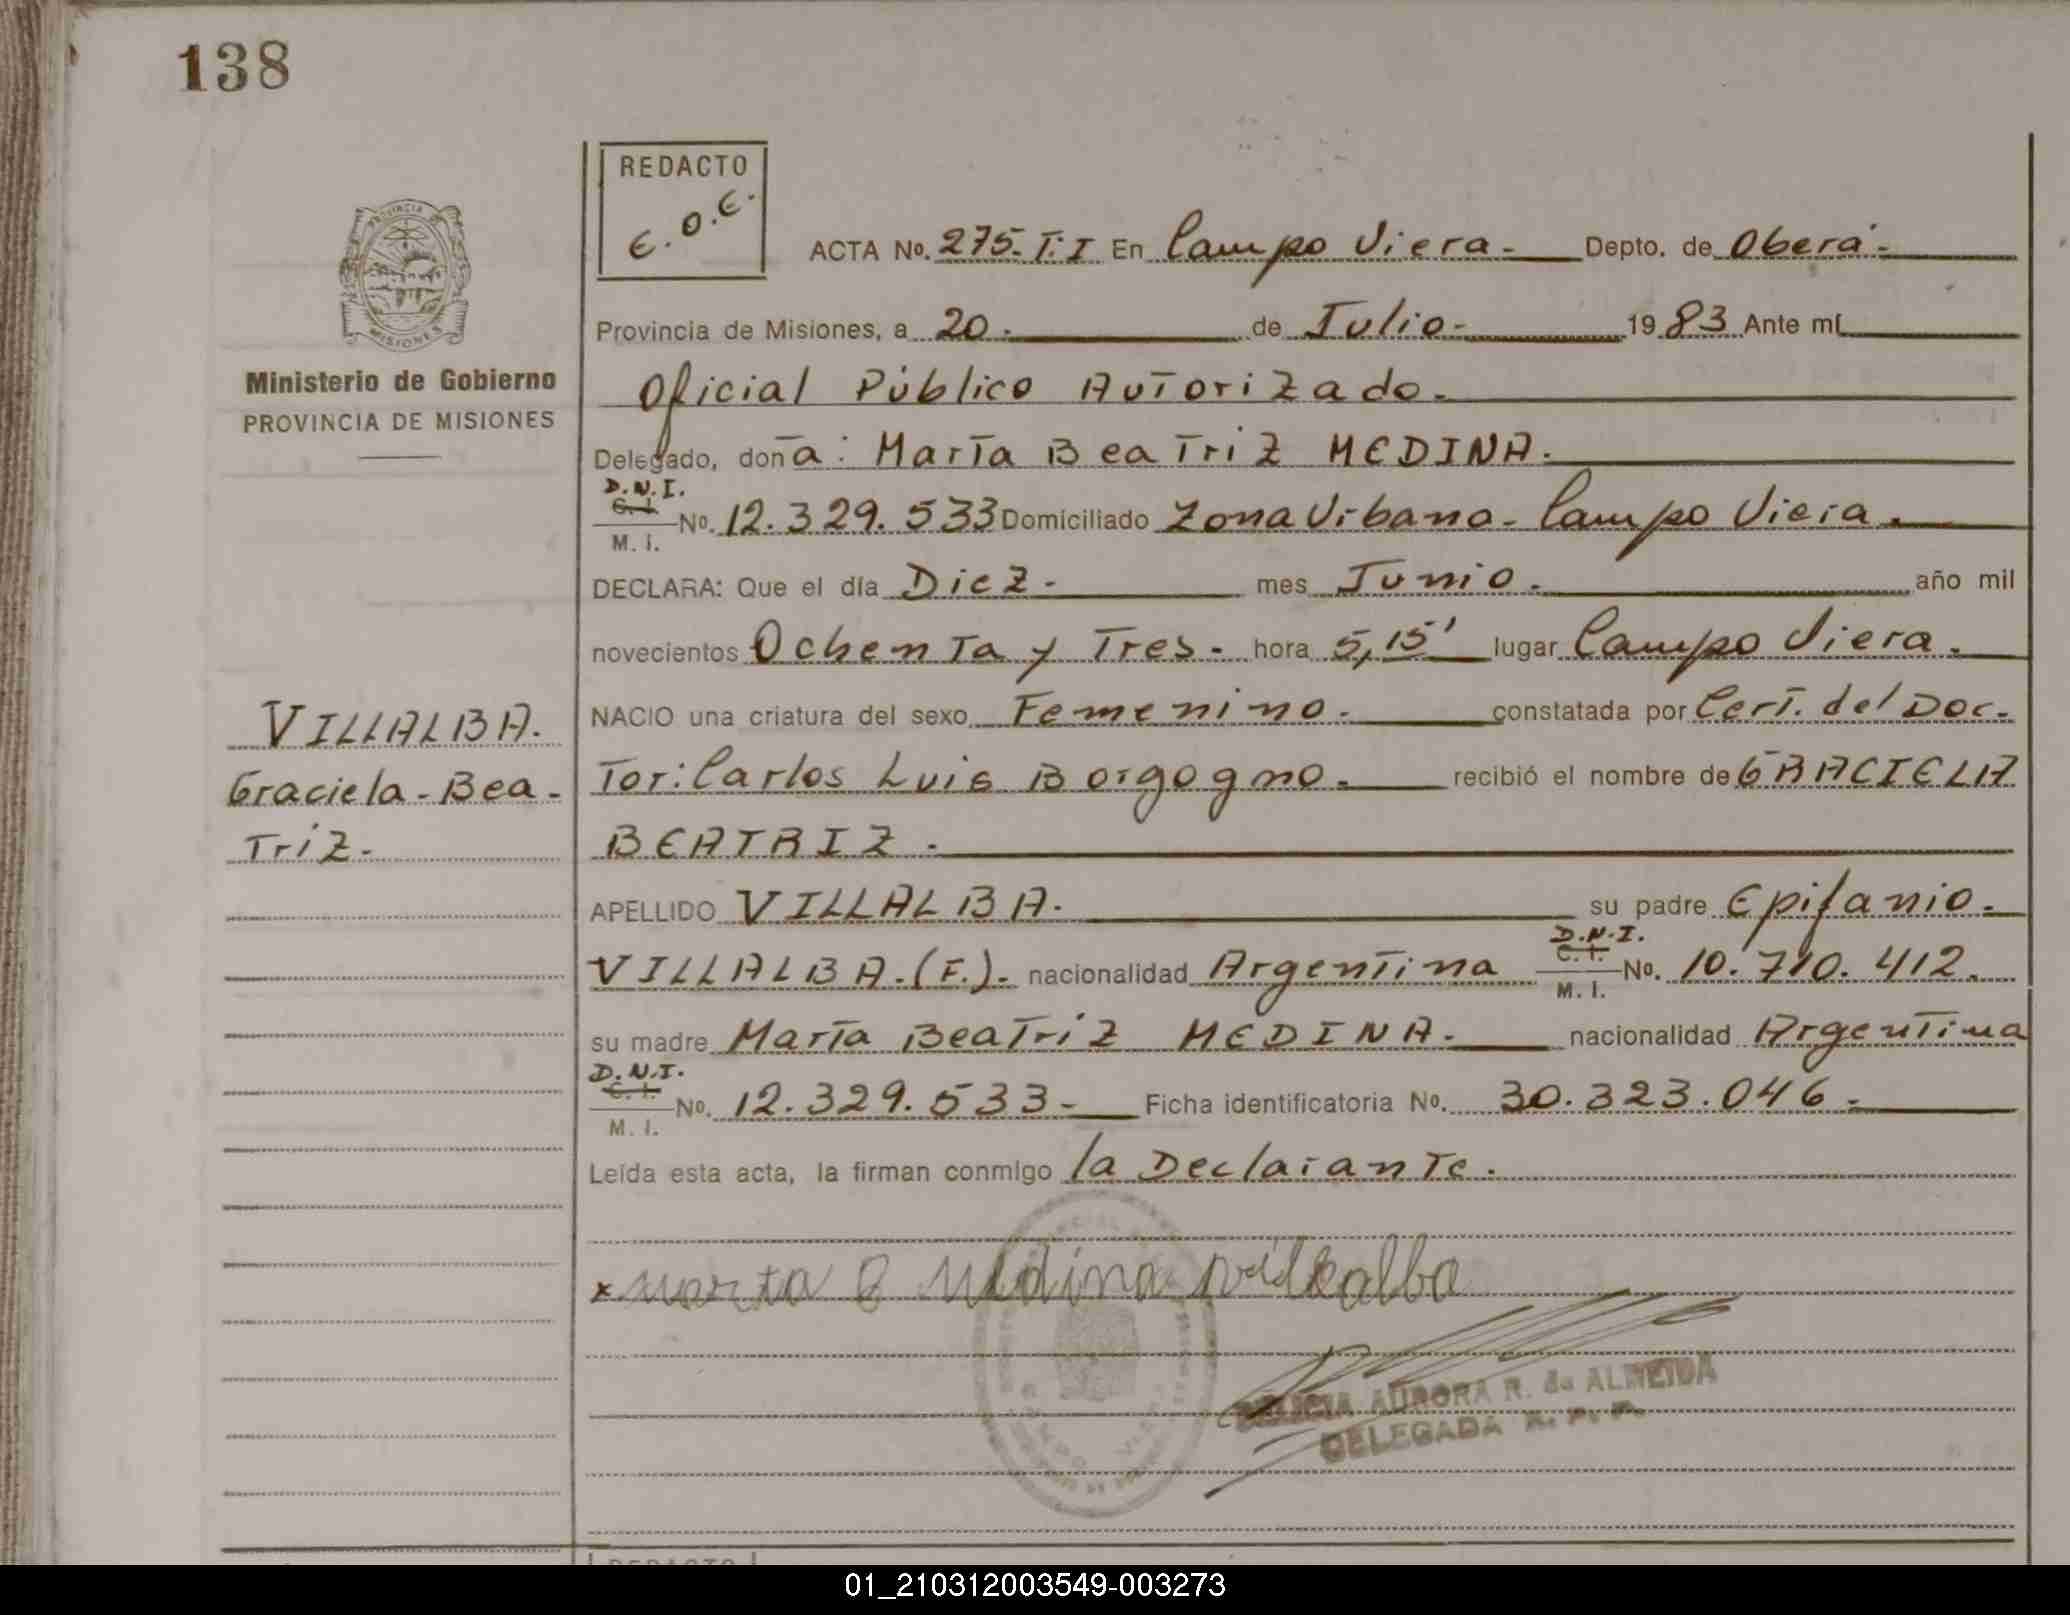 138
REDACTO
E.O.E.
ACTA No. 275-T:I En Campo Viera- Depto. de Oberá-
PROVINCIA DE
MISIONES
Ministerio de Gobierno
PROVINCIA DE MISIONES
Provincia de Misiones, a 20- de Julio- 1983 Ante mí
Oficial Público Autorizado-
Delegado, doña: María Beatriz MEDINA.
D.N.I.
C. I.
M. I.
No. 12.329.533 Domiciliado Zona Urbana- Campo Viera.
DECLARA: Que el día Diez- mes Junio. año mil
novecientos Ochenta y Tres- hora 5,15' lugar Campo Viera.
NACIO una criatura del sexo Femenino- constatada por Cert. del Doc-
tor: Carlos Luis Borgogno- recibió el nombre de GRACIELA
BEATRIZ.
VILLALBA.
Graciela-Bea-
triz-
APELLIDO VILLALBA. su padre Epifanio-
VILLALBA.(F.)- nacionalidad Argentina
D.N.I.
C. I.
M. I.
No. 10.710.412.
su madre María Beatriz MEDINA. nacionalidad Argentina
D.N.I.
C. I.
M. I.
No. 12.329.533- Ficha identificatoria No. 30.323.046-
Leída esta acta, la firman conmigo la Declarante.
x Marta B Medina villalba
AURORA R. de ALMEIDA
DELEGADA R. P. P.
REDACTO
01_210312003549-003273